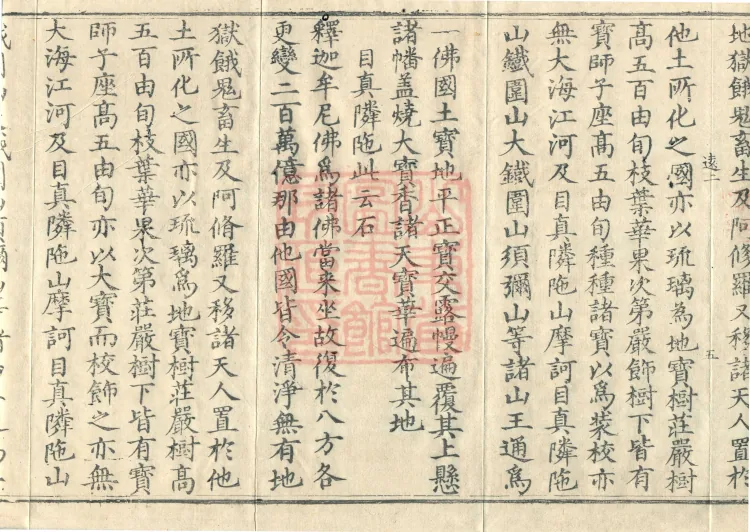 地獄餓鬼畜生及阿修羅又移諸天人置於
遠二 五
他土所化之國亦以琉璃為地寶樹莊嚴樹
髙五百由旬枝葉華果次第嚴飾樹下皆有
寶師子座髙五由旬種種諸寶以為裝校亦
無大海江河及目真隣陁山摩訶目真隣陁
山鐵圍山大鐵圍山須彌山等諸山王通爲
一佛國土寶地平正寶交露幔遍覆其上懸
諸幡盖燒大寶香諸天寶華遍布其地
目真隣陁此云石
釋迦牟尼佛爲諸佛當来坐故復於八方各
更變二百萬億那由他國皆令清淨無有地
獄餓鬼畜生及阿脩羅又移諸天人置於他
土所化之國亦以琉璃爲地寶樹莊嚴樹髙
五百由旬枝葉華果次第莊嚴樹下皆有寶
師子座髙五由旬亦以大寶而校飾之亦無
大海江河及目真隣陁山摩訶目真隣陁山